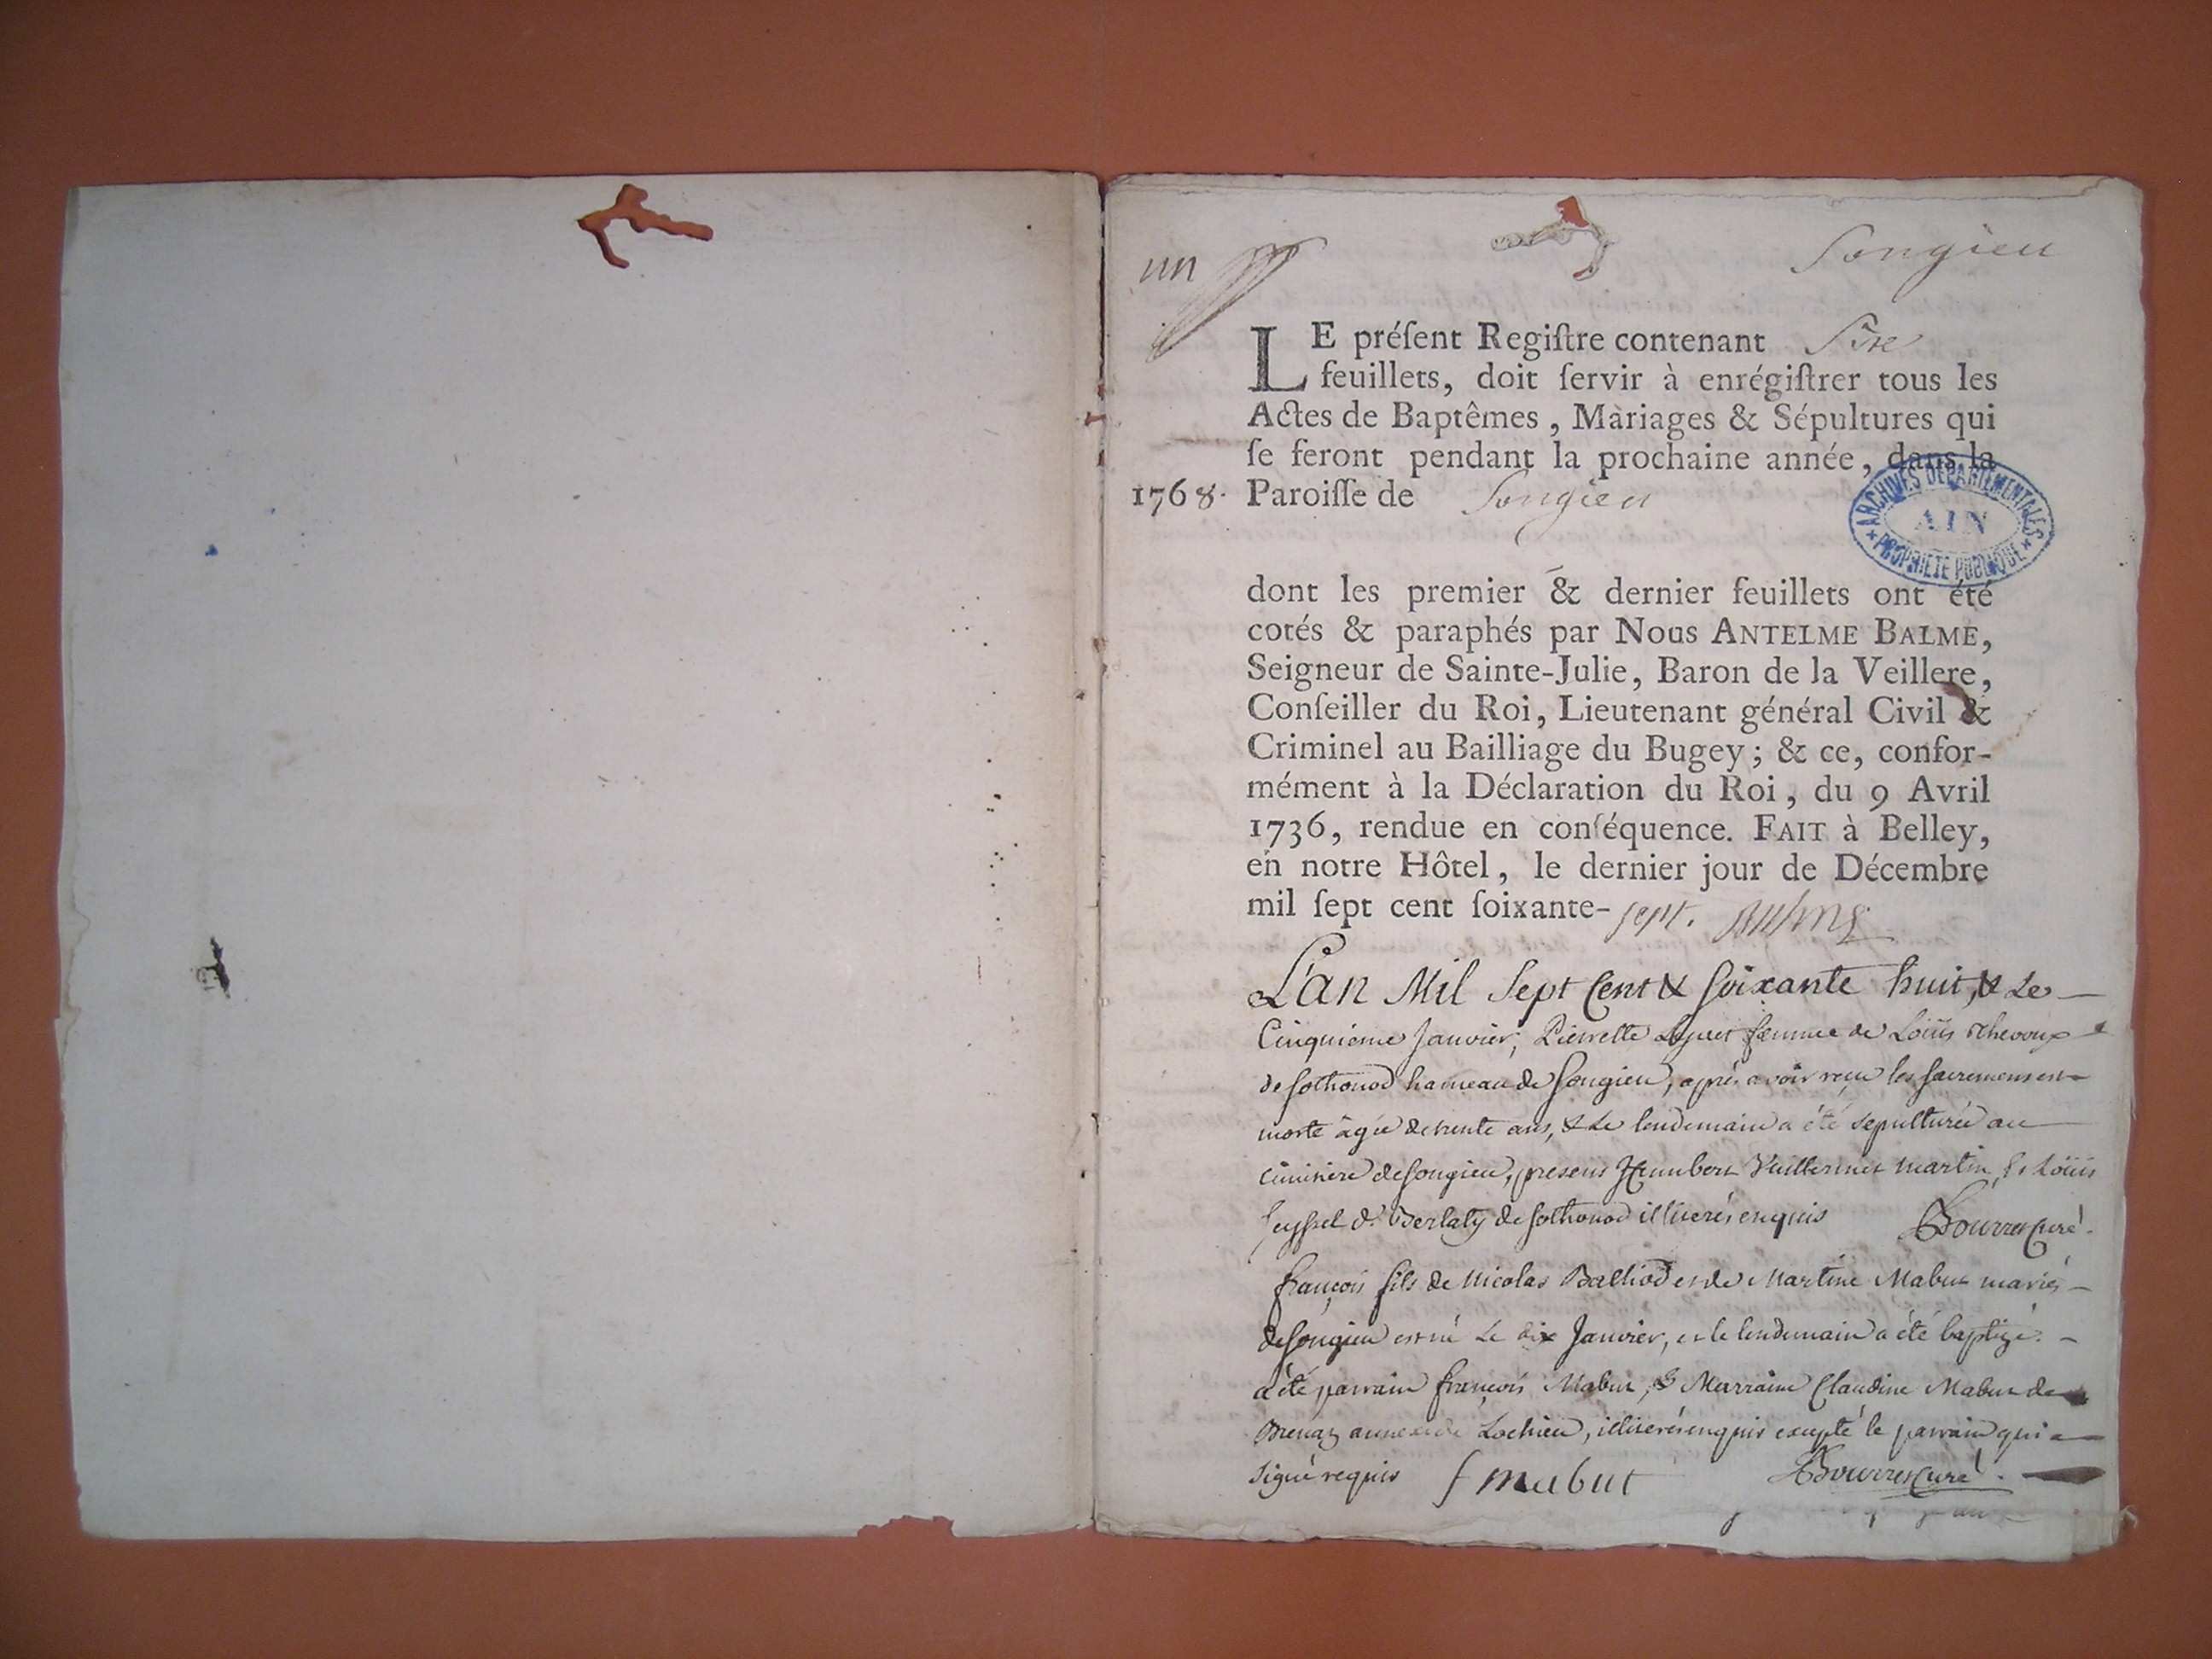 un
Songieu
LE préſent Regiſtre contenant
feuillets, doit ſervir à enrégiſtrer tous les
Actes de Baptêmes, Mariages & Sépultures qui
ſe feront pendant la prochaine année, dans la
1768. Paroiſſe de Songieu
ARCHIVES DÉPARTEMENTALES
AIN
* PROPRIÉTÉ PUBLIQUE *
dont les premier & dernier feuillets ont été
cotés & paraphés par Nous ANTELME BALME,
Seigneur de Sainte-Julie, Baron de la Veillere,
Conſeiller du Roi, Lieutenant général Civil &
Criminel au Bailliage du Bugey; & ce, confor-
mément à la Déclaration du Roi, du 9 Avril
1736, rendue en conſéquence. FAIT à Belley,
en notre Hôtel, le dernier jour de Décembre
mil ſept cent ſoixante-sept. Balme
L'an Mil Sept Cent & soixante huit, & Le
Cinquiéme Janvier, Pierrette femme de Loüis
de sothonod hameau de Songieu, après avoir reçu les sacremens est
morte âgée de trente ans, & Le lendemain a été sepulturée au
cimitière de songieu, presens Humbert Vuillermet martin, & Loüis
seyssel d. de sothonod illiterés enquis Bourret Curé.
françois fils de Nicolas Balliod et de Martine Mabut mariés
de songieu est né Le dix Janvier, et le lendemain a été baptizé.
a été parrain françois Mabut, & Marraine Claudine Mabut de
Brenaz annexe de Lochieu, illiterés enquis excepté le parrain qui a
signé requis f mabut Bourret Curé.